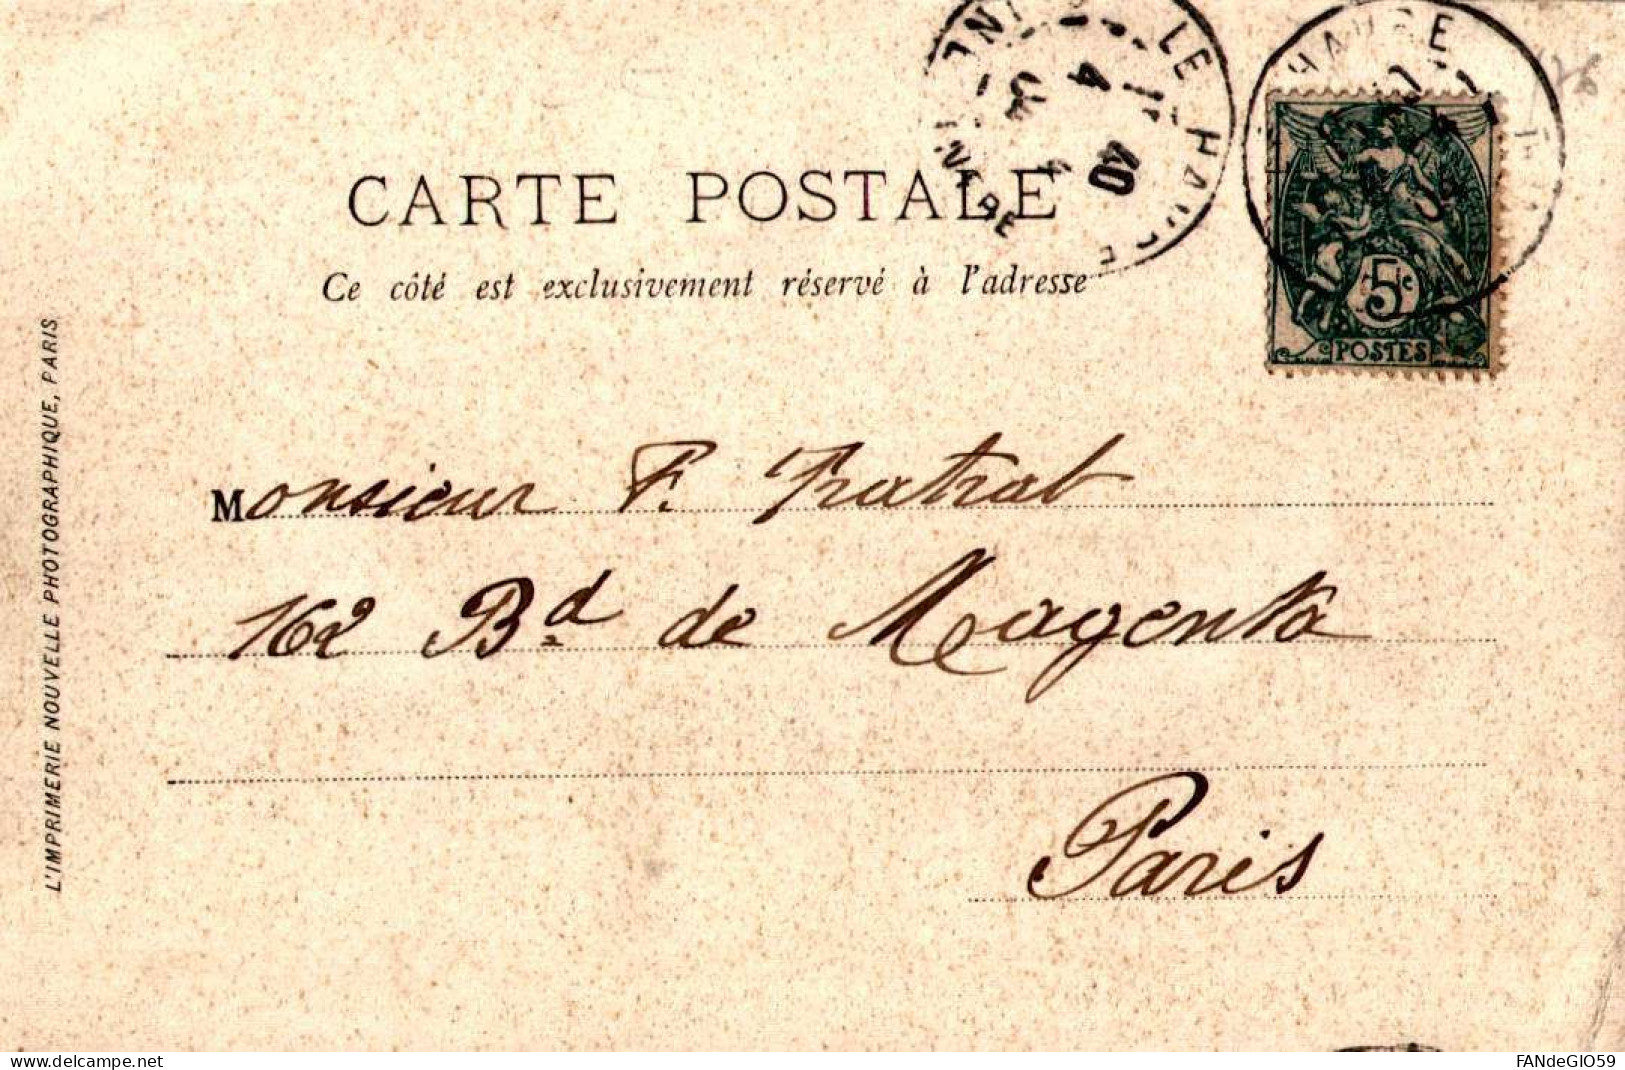 LE HAVRE
HAVRE
76
CARTE POSTALE
Ce côté est exclusivement réservé à l'adresse
5c
POSTES
Monsieur F. Pratrat
162 Bd de Magenta
Paris
L'IMPRIMERIE NOUVELLE PHOTOGRAPHIQUE, PARIS
www.delcampe.net
FANdeGIO59